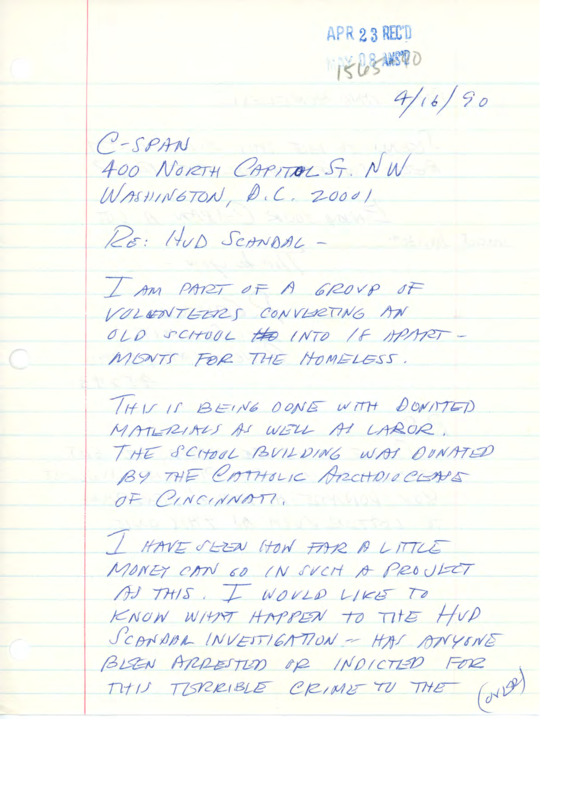 APR 23 REC'D
MAY 08 ANS'D
1565
4/16/90
C-SPAN
400 NORTH CAPITOL ST. NW
WASHINGTON, D.C. 20001
RE: HUD SCANDAL -
I AM PART OF A GROUP OF
VOLENTEERS CONVERTING AN
OLD SCHOOL INTO 18 APART-
MENTS FOR THE HOMELESS.
THIS IS BEING DONE WITH DONATED
MATERIALS AS WELL AS LABOR.
THE SCHOOL BUILDING WAS DONATED
BY THE CATHOLIC ARCHDIOCLEASE
OF CINCINNATI.
I HAVE SEEN HOW FAR A LITTLE
MONEY CAN GO IN SUCH A PROJECT
AS THIS. I WOULD LIKE TO
KNOW WHAT HAPPEN TO THE HUD
SCANDAL INVESTIGATION - HAS ANYONE
BEEN ARRESTED OR INDICTED FOR
THIS TERRIBLE CRIME TO THE
(OVER)